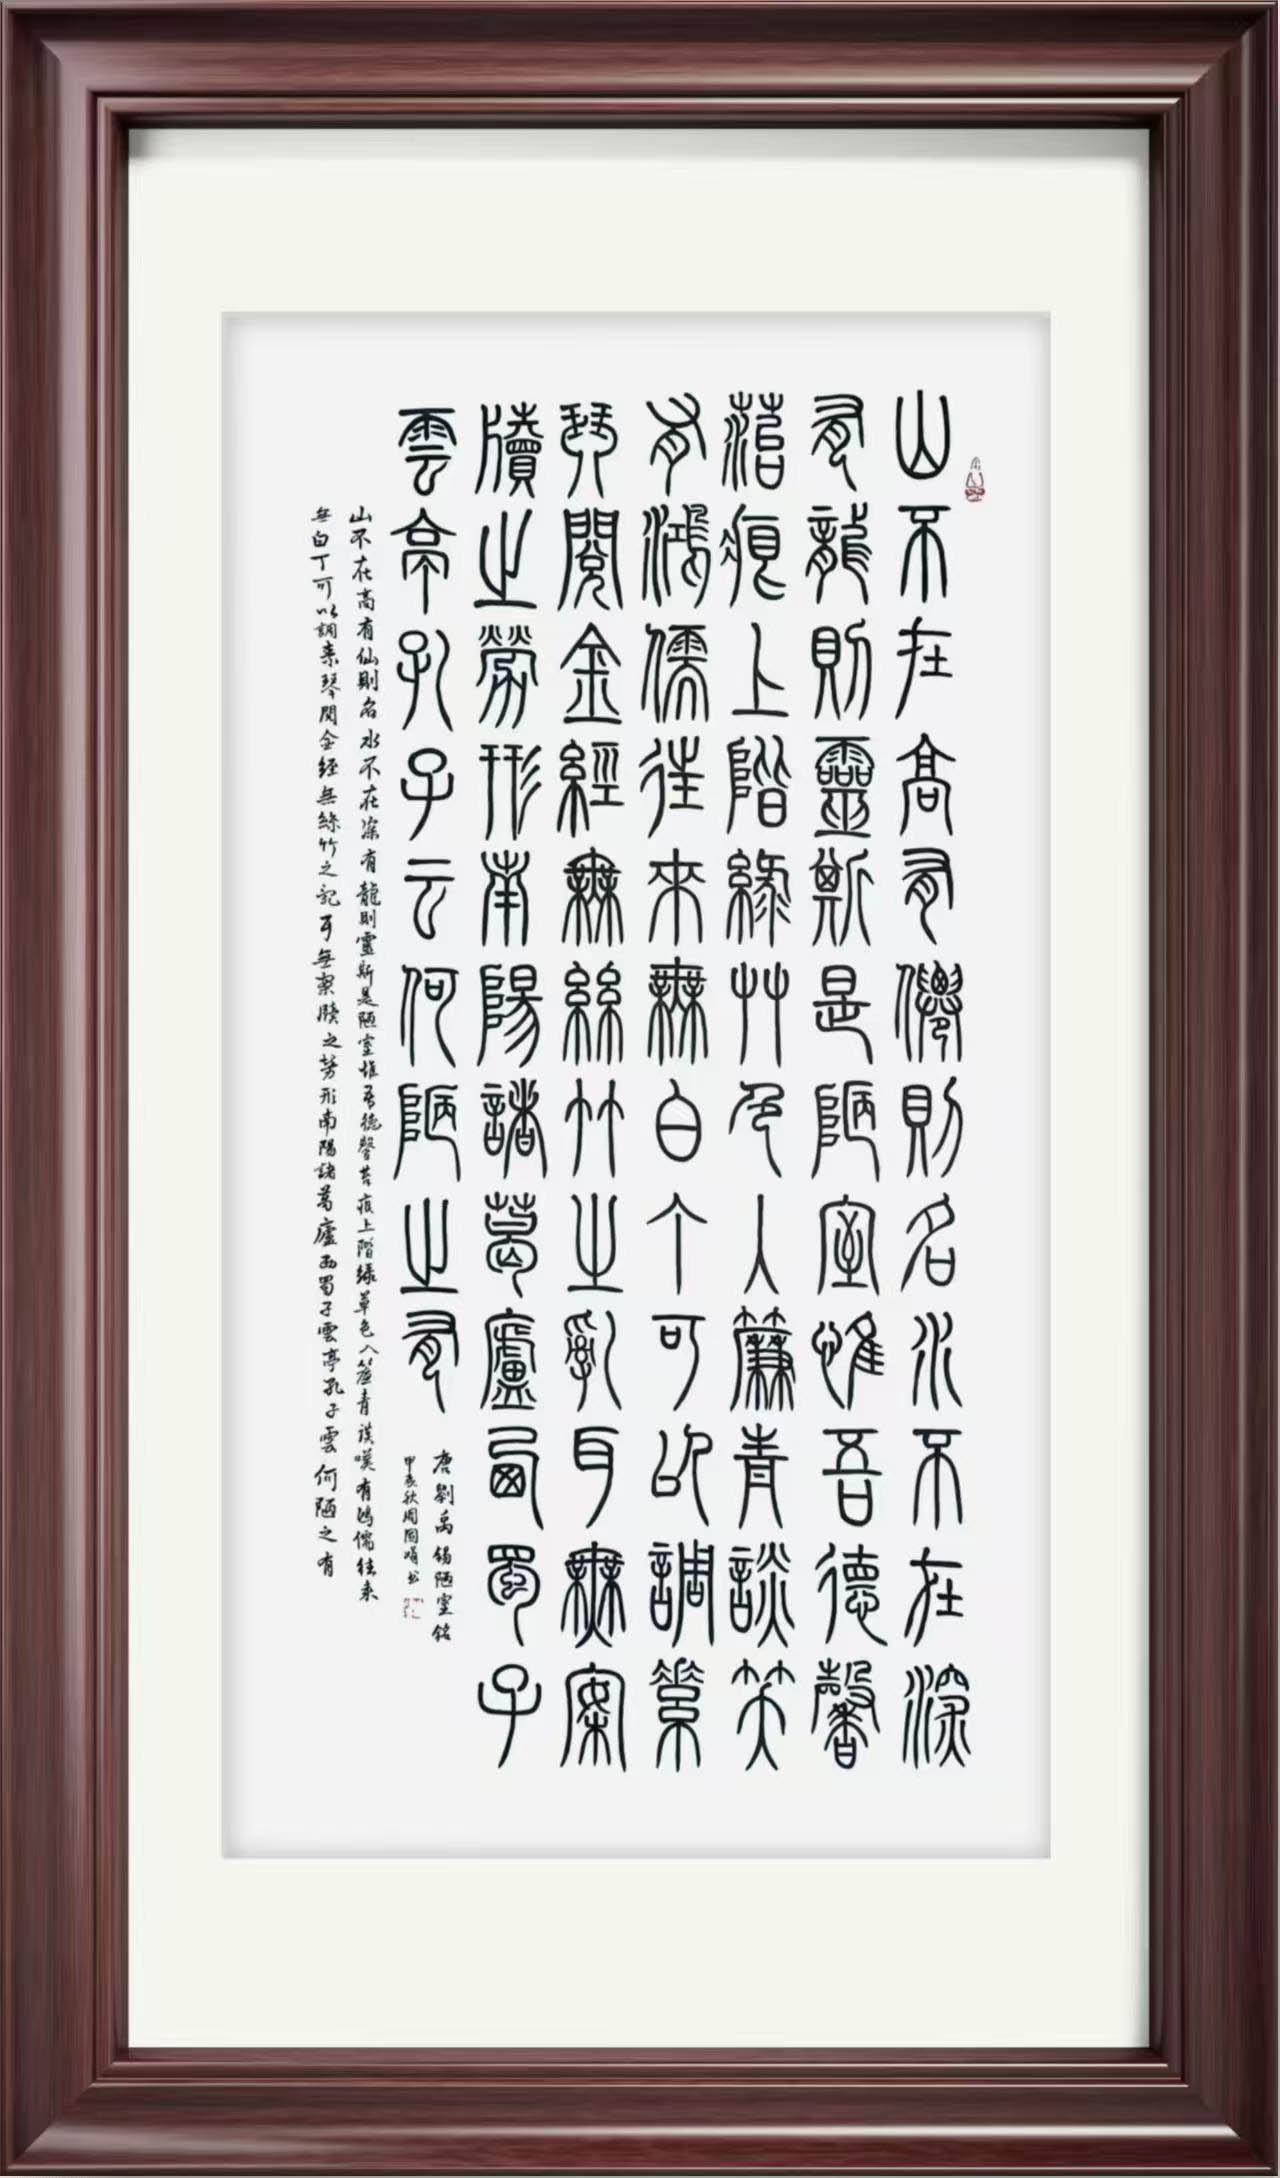 山不在高有僊則名水不在深
有龍則靈斯是陋室惟吾德馨
菭痕上階綠艸色入簾青談笑
有鴻儒往來無白丁可以調素
琴閱金經無絲竹之亂耳無案
牘之勞形南陽諸葛廬西蜀子
雲亭孔子云何陋之有
唐劉禹錫陋室銘
書
山不在高有仙則名水不在深有龍則靈斯是陋室惟吾德馨苔痕上階綠草色入簾青談嘆有鴻儒往來
無白丁可以調素琴閱金經無絲竹之乱耳無案牘之勞形南陽諸葛廬西蜀子雲亭孔子雲何陋之有